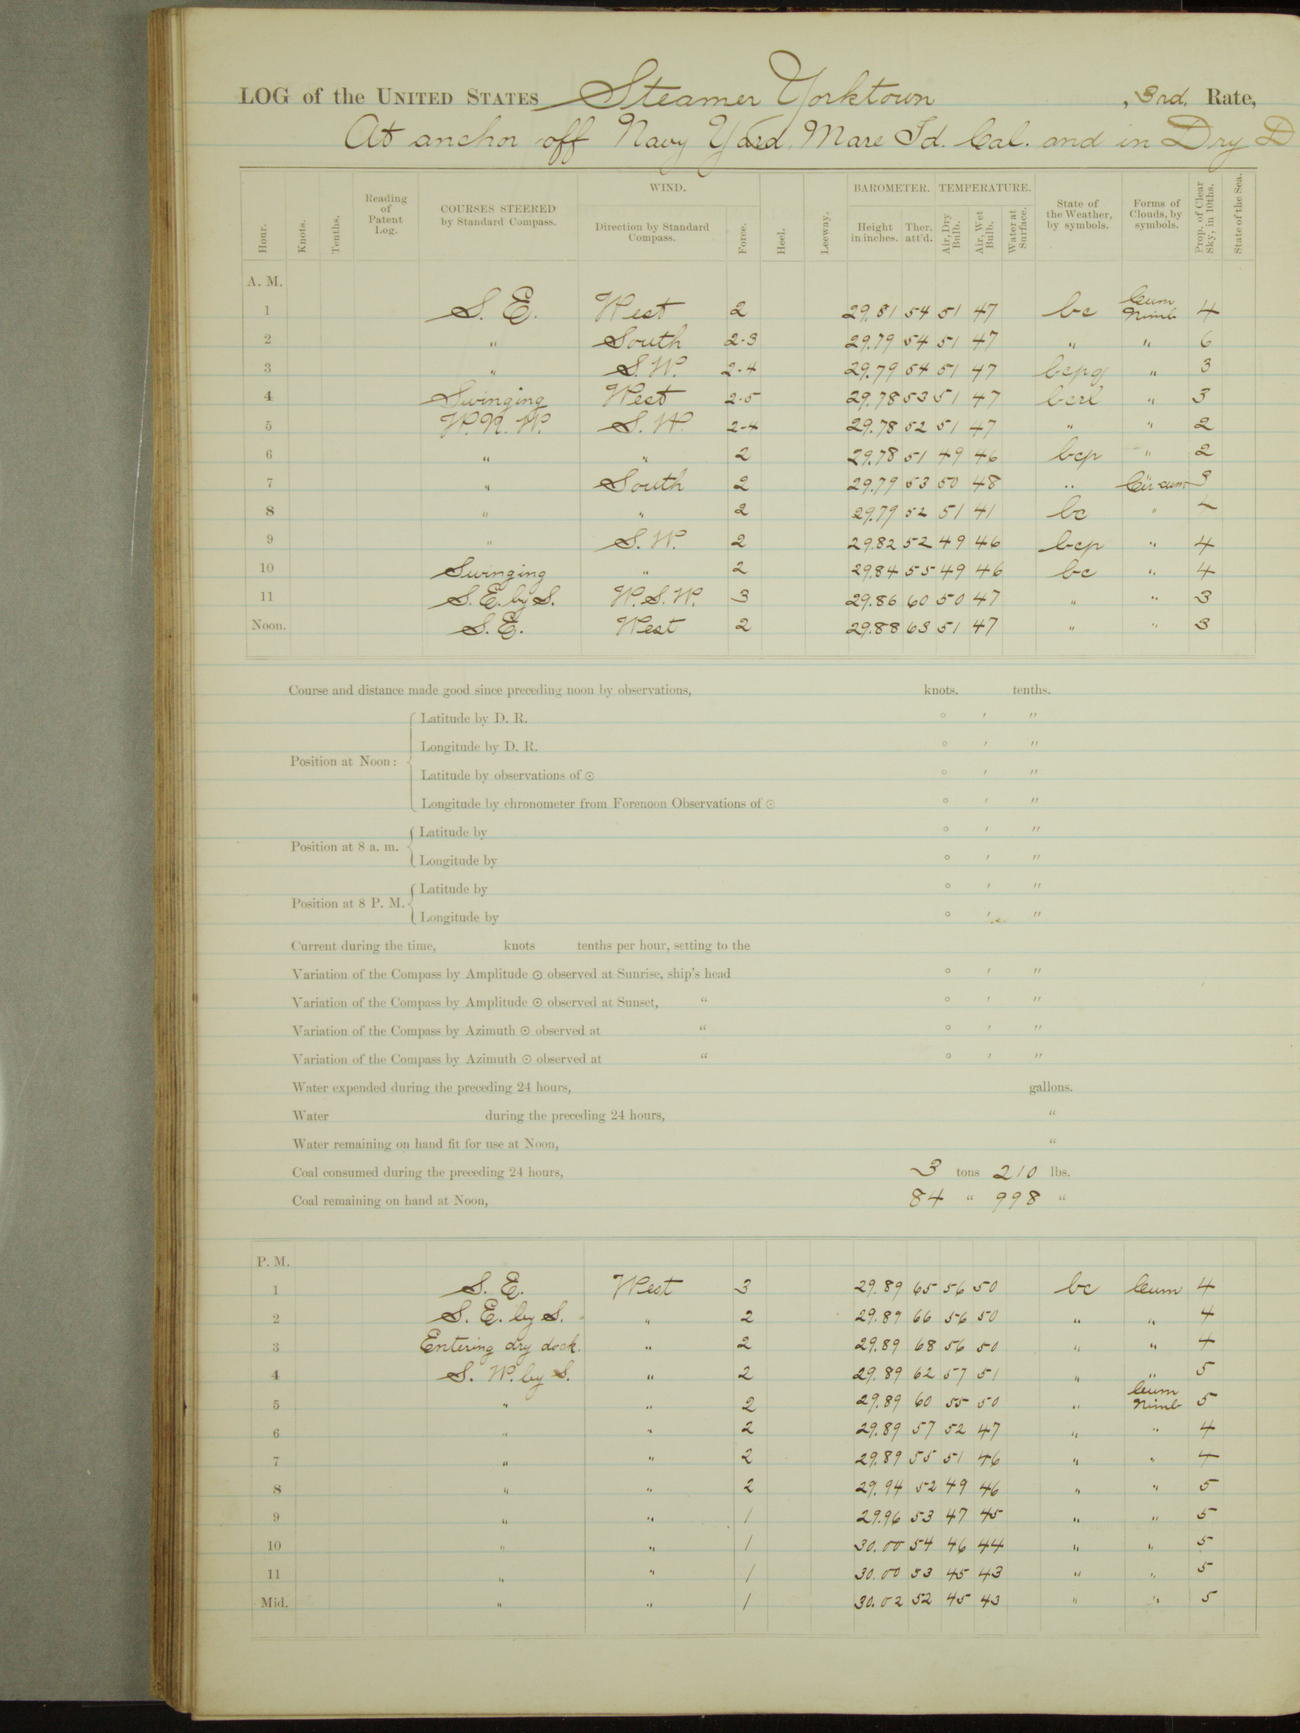 LOG of the UNITED STATES Steamer Yorktown , 3rd. Rate,
At anchor off Navy Yard, Mare Id. Cal. and in Dry D
Hour. Knots. Tenths. Reading of Patent Log. COURSES STEERED by Standard Compass. WIND. Direction by Standard Compass. Force. Heel. Leeway. BAROMETER. Height in inches. Ther. att'd. TEMPERATURE. Air, Dry Bulb. Air, Wet Bulb. Water at Surface. State of the Weather, by symbols. Forms of Clouds, by symbols. Prop. of Clear Sky, in 10ths. State of the Sea.
A. M.
1 S. E. West 2 29.81 54 51 47 bc Cum Nimb 4
2 " South 2-3 29.79 54 51 47 " " 6
3 " S.W. 2-4 29.79 54 51 47 bcpq " 3
4 Swinging West 2-5 29.78 53 51 47 bcrl " 3
5 W.N.W. S.W. 2-4 29.78 52 51 47 " " 2
6 " " 2 29.78 51 49 46 bcp " 2
7 " South 2 29.79 53 50 48 " Cir cum 3
8 " " 2 29.79 52 51 41 bc "
9 " S.W. 2 29.82 52 49 46 bcp " 4
10 Swinging " 2 29.84 55 49 46 bc " 4
11 S.E. by S. W.S.W. 3 29.86 60 50 47 " " 3
Noon. S.E. West 2 29.88 63 51 47 " " 3
Course and distance made good since preceding noon by observations, knots. tenths.
Position at Noon: Latitude by D. R. ° ′ ″
Longitude by D. R. ° ′ ″
Latitude by observations of ⊙ ° ′ ″
Longitude by chronometer from Forenoon Observations of ⊙ ° ′ ″
Position at 8 a. m. Latitude by ° ′ ″
Longitude by ° ′ ″
Position at 8 P. M. Latitude by ° ′ ″
Longitude by ° ′ ″
Current during the time, knots tenths per hour, setting to the
Variation of the Compass by Amplitude ⊙ observed at Sunrise, ship's head ° ′ ″
Variation of the Compass by Amplitude ⊙ observed at Sunset, " ° ′ ″
Variation of the Compass by Azimuth ⊙ observed at " ° ′ ″
Variation of the Compass by Azimuth ⊙ observed at " ° ′ ″
Water expended during the preceding 24 hours, gallons.
Water during the preceding 24 hours, "
Water remaining on hand fit for use at Noon, "
Coal consumed during the preceding 24 hours, 3 tons 210 lbs.
Coal remaining on hand at Noon, 84 " 998 "
P. M.
1 S. E. West 3 29.89 65 56 50 bc Cum 4
2 S. E. by S. " 2 29.89 66 56 50 " " 4
3 Entering dry dock. " 2 29.89 68 56 50 " " 4
4 S. W. by S. " 2 29.89 62 57 51 " " 5
5 " " 2 29.89 60 55 50 " Cum Nimb 5
6 " " 2 29.89 57 52 47 " " 4
7 " " 2 29.89 55 51 46 " " 4
8 " " 2 29.94 52 49 46 " " 5
9 " " 1 29.96 53 47 45 " " 5
10 " " 1 30.00 54 46 44 " " 5
11 " " 1 30.00 53 45 43 " " 5
Mid. " " 1 30.02 52 45 43 " " 5